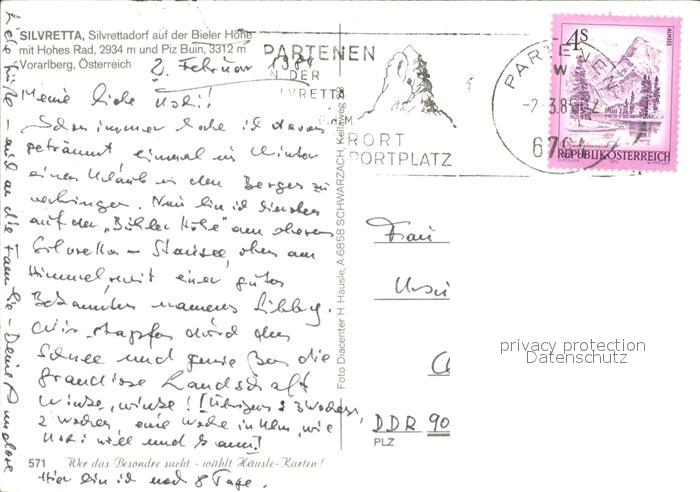 SILVRETTA, Silvrettadorf auf der Bieler Höhe
mit Hohes Rad, 2934 m und Piz Buin, 3312 m
Vorarlberg, Österreich
2. Februar
Meine liebe Uschi!
Schon immer habe ich davon
geträumt, einmal im Winter
einen Urlaub in den Bergen zu
verbringen. Nun bin ich
auf der „Bieler Höhe" am oberen
Silvretta - Stausee, oben am
Himmel, mit einer guten
Bekannten namens Sibby.
Wir stapfen durch den
Schnee und genießen die
grandiose Landschaft
Winke, winke! 3 Wochen,
2 Wochen, eine Woche in Ulm, wie
will und kann!
571 Wer das Besondre sucht - wählt Häusle-Karten!
Hier bin ich noch 8 Tage.
Liebe Grüße - auch an die Familie - Deine Annelore
Foto Diacenter H. Häusle, A-6858 SCHWARZACH, Kellaweg
PARTENEN
IN DER
SILVRETTA
PORTPLATZ
PARTENEN
4s
ALMSEE
REPUBLIK ÖSTERREICH
Frau
DDR 90
PLZ
privacy protection
Datenschutz